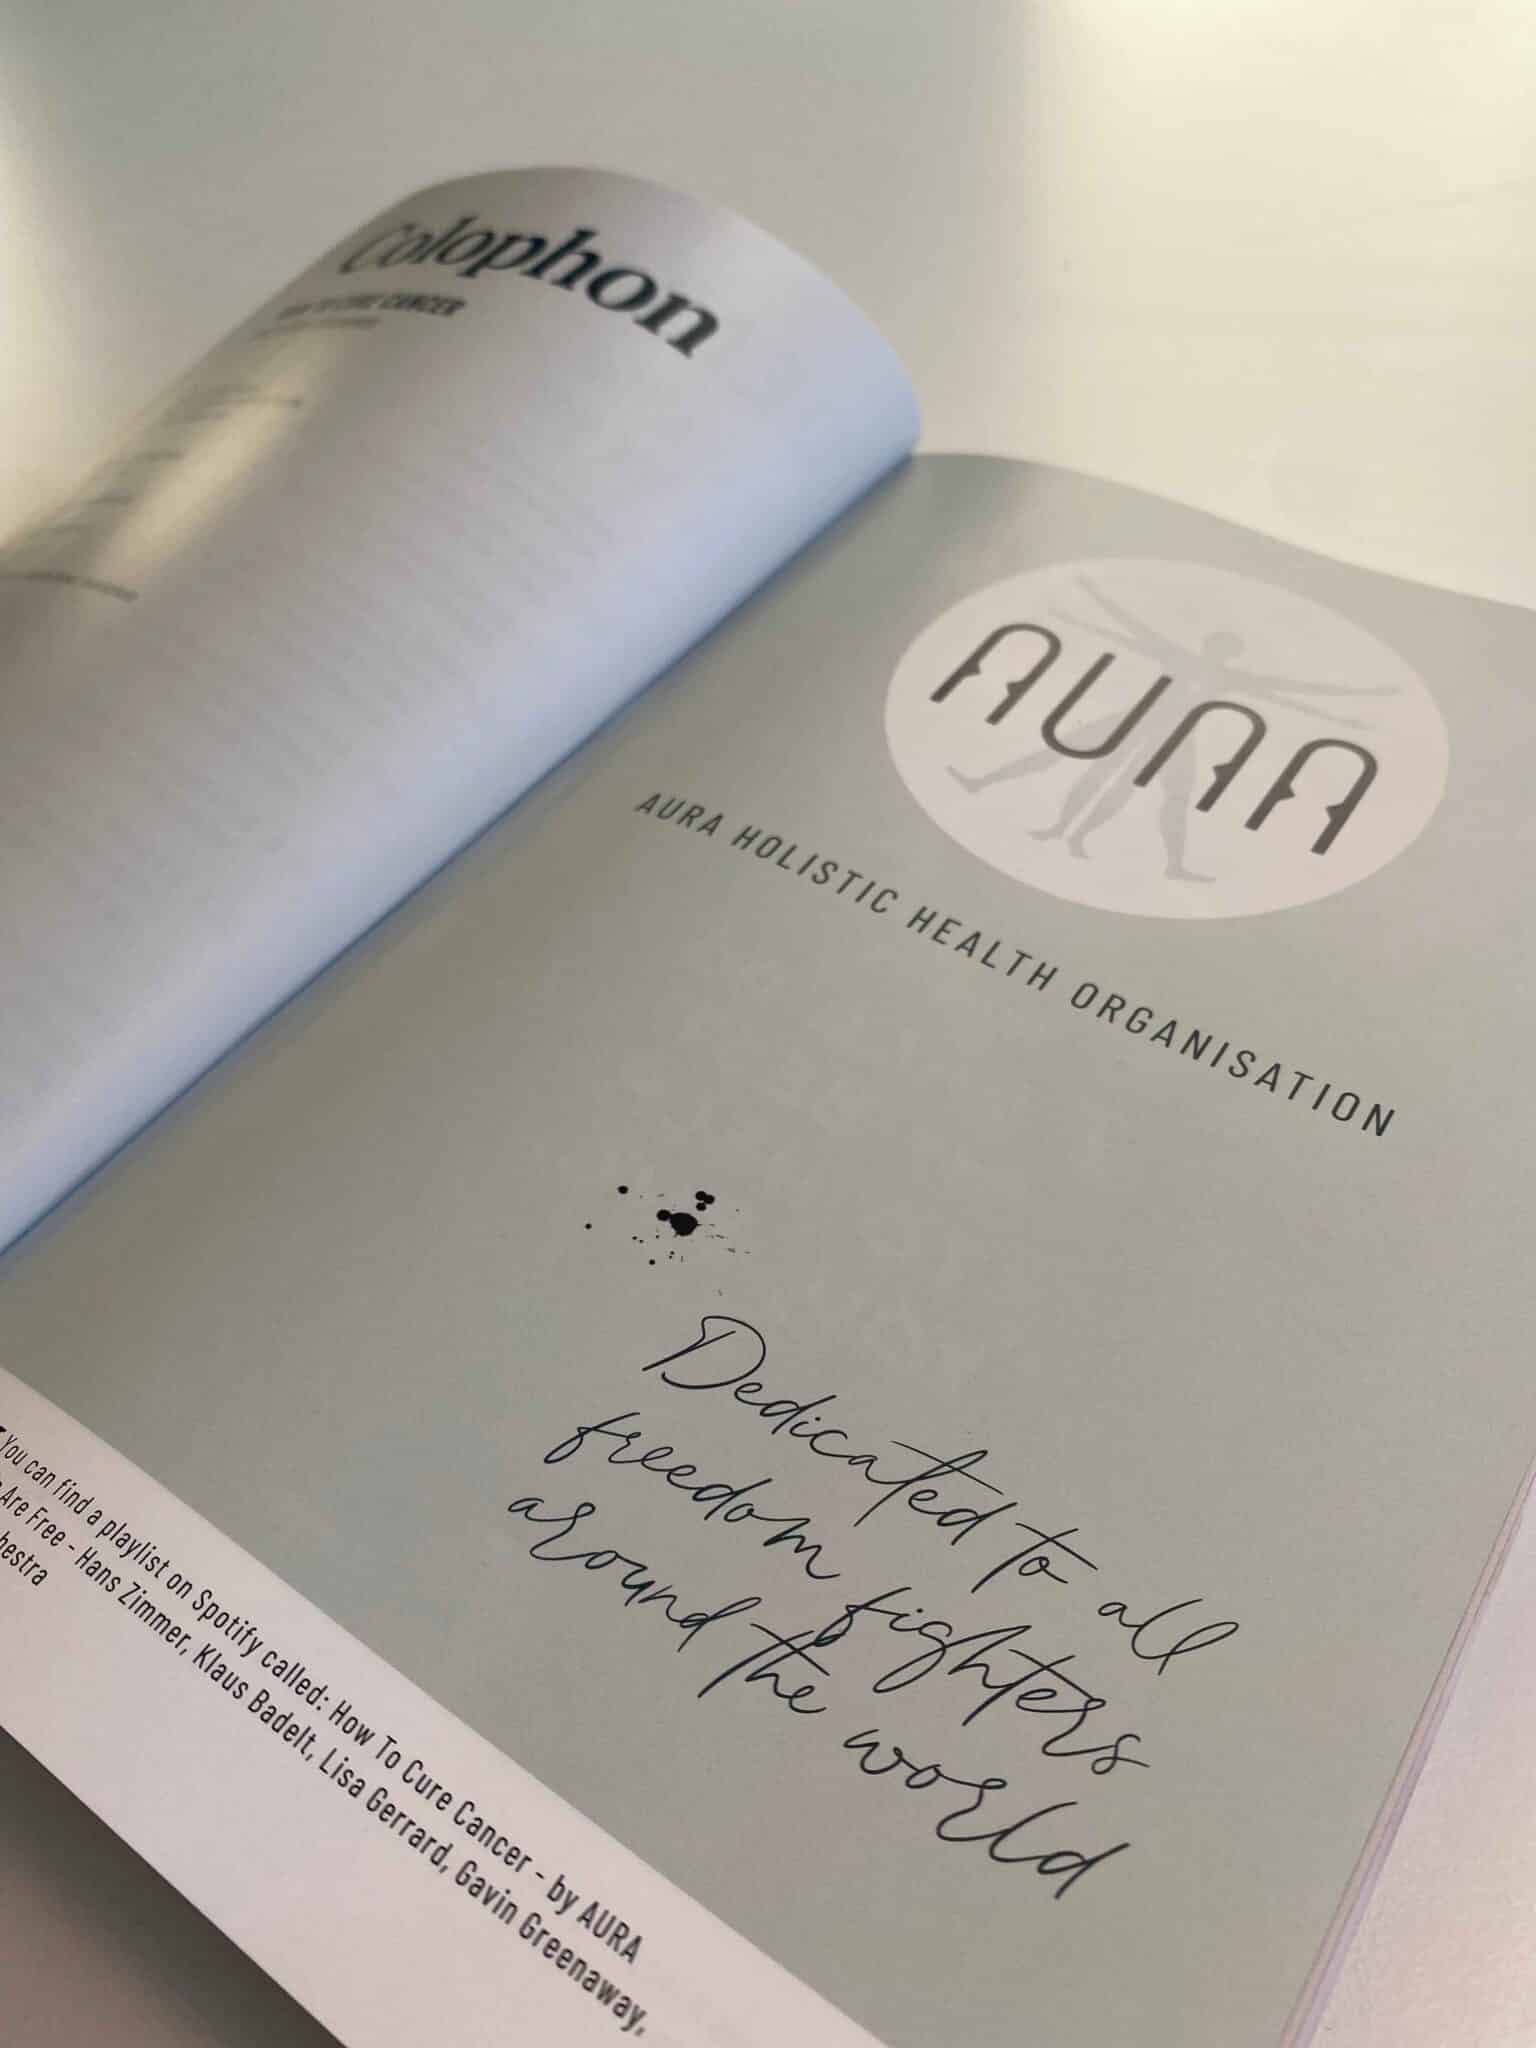 Colophon
HOW TO CURE CANCER
AURA
AURA HOLISTIC HEALTH ORGANISATION
Dedicated to all
freedom fighters
around the world
You can find a playlist on Spotify called: How To Cure Cancer - by AURA
Are Free - Hans Zimmer, Klaus Badelt, Lisa Gerrard, Gavin Greenaway,